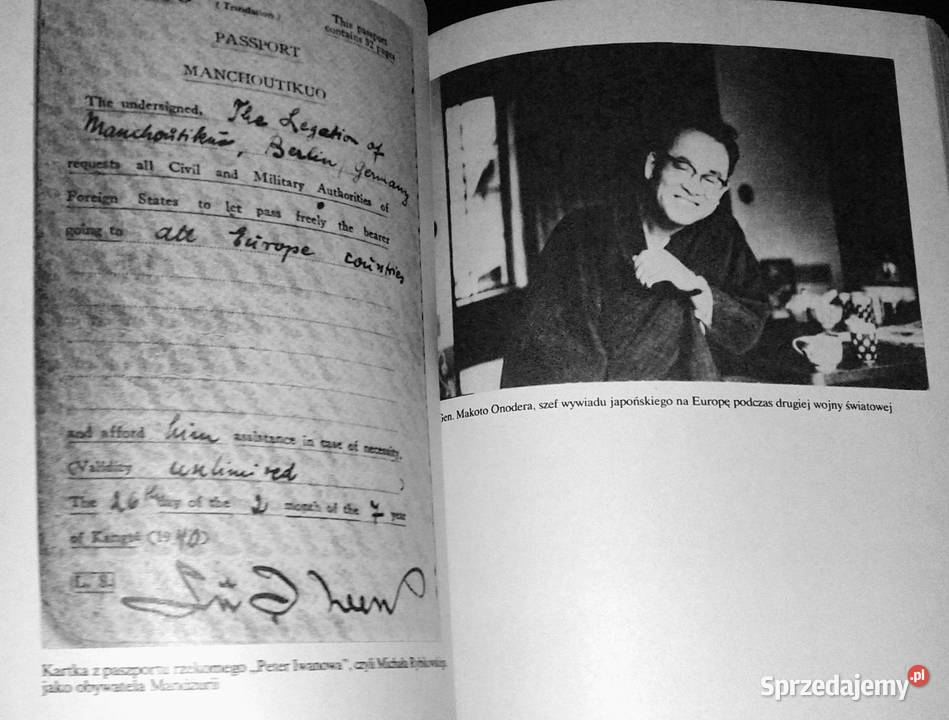 ( Translation )
This passport
contains 32 pages
PASSPORT
MANCHOUTIKUO
The undersigned, The Legation of
Manchoutikuo, Berlin, Germany
requests all Civil and Military Authorities of
Foreign States to let pass freely the bearer
going to all Europe countries
and afford him assistance in case of necessity.
(Validity unlimited )
The 26th day of the 2 month of the 7 year
of Kangté (1940)
L. S.
Kartka z paszportu rzekomego „Peter Iwanowa”, czyli Michała Rybikowskiego
jako obywatela Mandżurii
Gen. Makoto Onodera, szef wywiadu japońskiego na Europę podczas drugiej wojny światowej
Sprzedajemy.pl